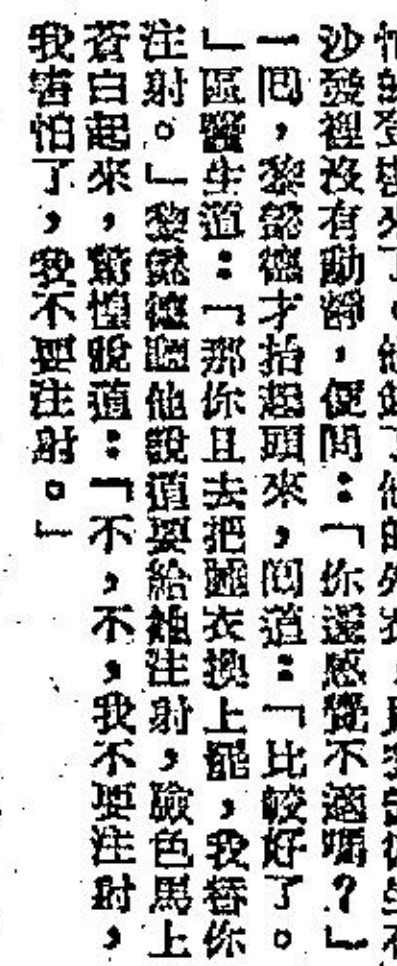 沙發裡沒有動靜，便問：「你還感覺不適嗎？」
一問，黎懿德才抬起頭來，問道：「比較好了。
」區醫生道：「那你且去把睡衣換上罷，我替你
注射。」黎懿德聽他說道要給她注射，臉色馬上
蒼白起來，驚惶說道：「不，不，我不要注射，
我害怕了，我不要注射。」